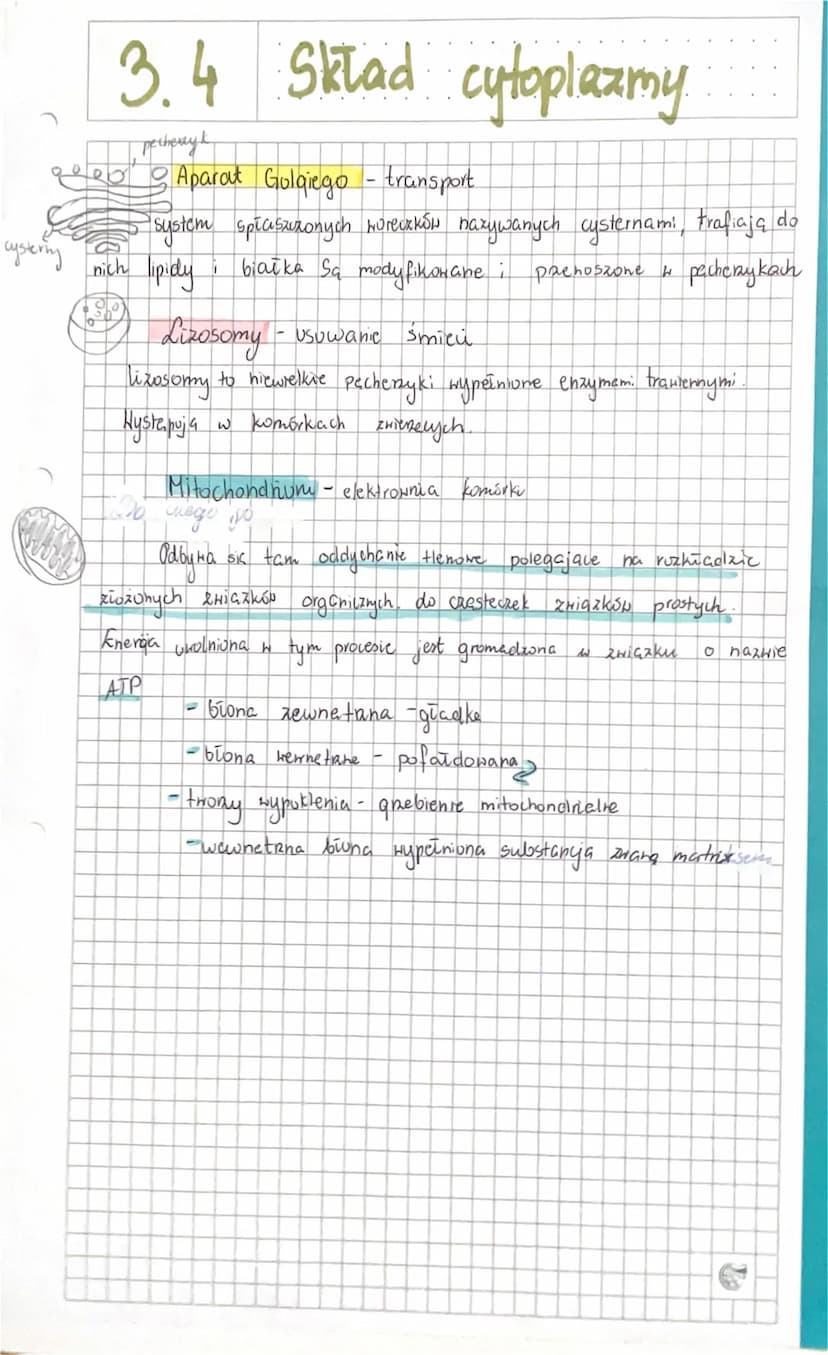 3.4 Skład cytoplazmy
pęcherzyk
Aparat Golgiego - transport
system spłaszczonych woreczków nazywanych cysternami, trafiają do
cysterny
nich lipidy i białka są modyfikowane i przenoszone w pęcherzykach
Lizosomy - usuwanie śmieci
lizosomy to niewielkie pęcherzyki wypełnione enzymami trawiennymi.
Występują w komórkach zwierzęcych.
Mitochondrium - elektrownia komórki
Do czego
Odbywa się tam oddychanie tlenowe polegające na rozkładzie
złożonych związków organicznych do cząsteczek związków prostych.
Energia uwolniona w tym procesie jest gromadzona w związku o nazwie
ATP
- błona zewnętrzna - gładka
- błona wewnętrzna - pofałdowana
- tworzy wypuklenia - grzebienie mitochondrialne
- wewnętrzna błona wypełniona substancją zwaną matriksem